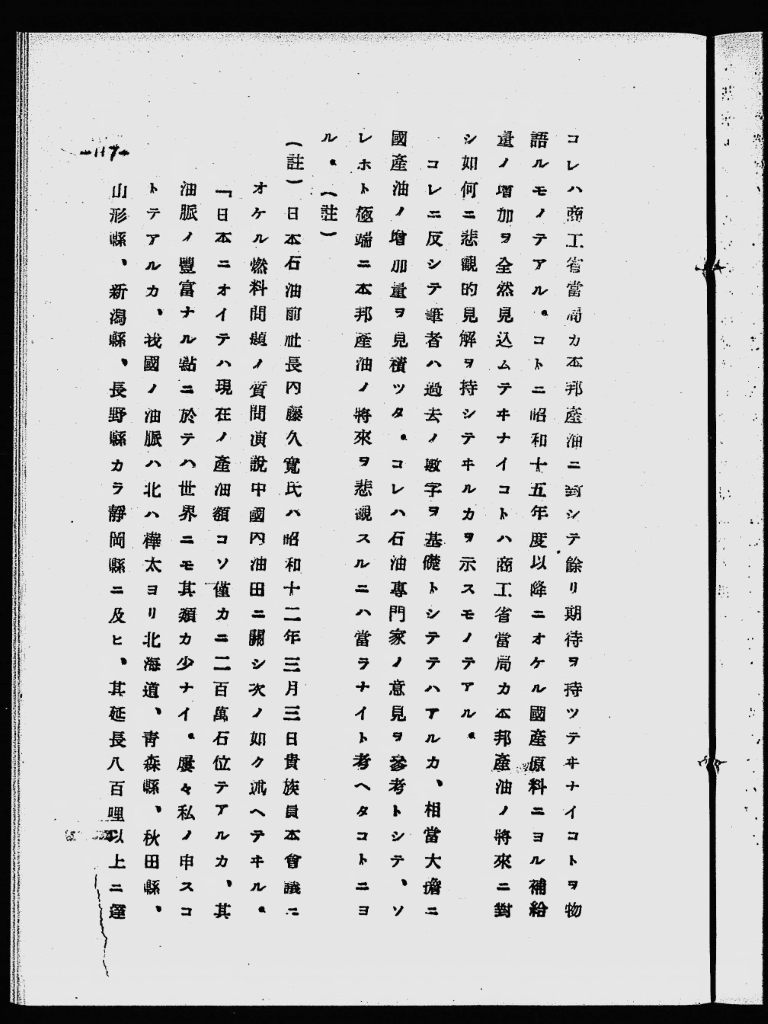 コレハ商工省當局カ本邦產油ニ對シテ餘リ期待ヲ持ツテヰナイコトヲ物
語ルモノテアル。コトニ昭和十五年度以降ニオケル國產原料ニヨル補給
量ノ增加ヲ全然見込ムテヰナイコトハ商工省當局カ本邦產油ノ將來ニ對
シ如何ニ悲觀的見解ヲ持シテヰルカヲ示スモノテアル。
コレニ反シテ筆者ハ過去ノ數字ヲ基礎トシテテハアルカ、相當大膽ニ
國產油ノ增加量ヲ見積ツタ。コレハ石油專門家ノ意見ヲ參考トシテ、ソ
レホト極端ニ本邦產油ノ將來ヲ悲觀スルニハ當ラナイト考ヘタコトニヨ
ル。(註)
(註)日本石油前社長內藤久寬氏ハ昭和十二年三月三日貴族員本會議ニ
オケル燃料問題ノ質問演說中國內油田ニ關シ次ノ如ク述ヘテヰル。
「日本ニオイテハ現在ノ產油額コソ僅カニ二百萬石位テアルカ、其
油脈ノ豐富ナル點ニ於テハ世界ニモ其類カ少ナイ。屢々私ノ申スコ
トテアルカ、我國ノ油脈ハ北ハ樺太ヨリ北海道、靑森縣、秋田縣、
山形縣、新潟縣、長野縣カラ靜岡縣ニ及ヒ、其延長八百哩以上ニ達
-117-